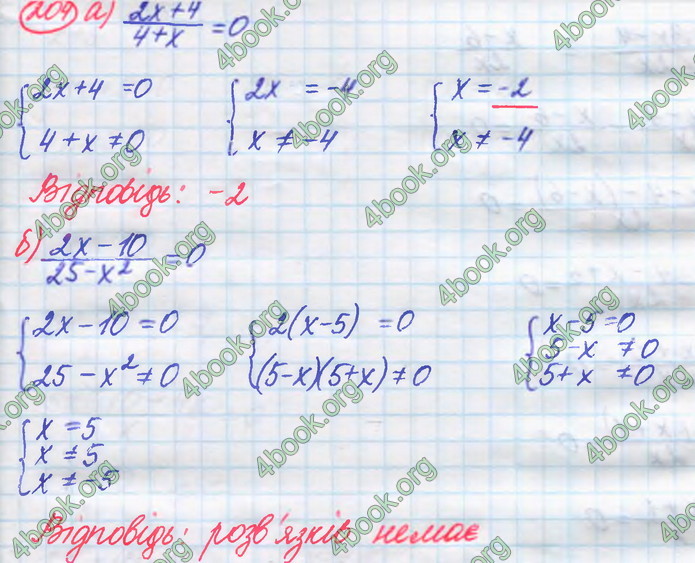 209 а) (2x+4)/(4+x) = 0
{ 2x+4 = 0 { 2x = -4 { x = -2
{ 4+x ≠ 0 { x ≠ -4 { x ≠ -4
Відповідь: -2
б) (2x-10)/(25-x²) = 0
{ 2x-10 = 0 { 2(x-5) = 0 { x-5 = 0
{ 25-x² ≠ 0 { (5-x)(5+x) ≠ 0 { 5-x ≠ 0
{ 5+x ≠ 0
{ x = 5
{ x ≠ 5
{ x ≠ -5
Відповідь: розв'язків немає
4book.org